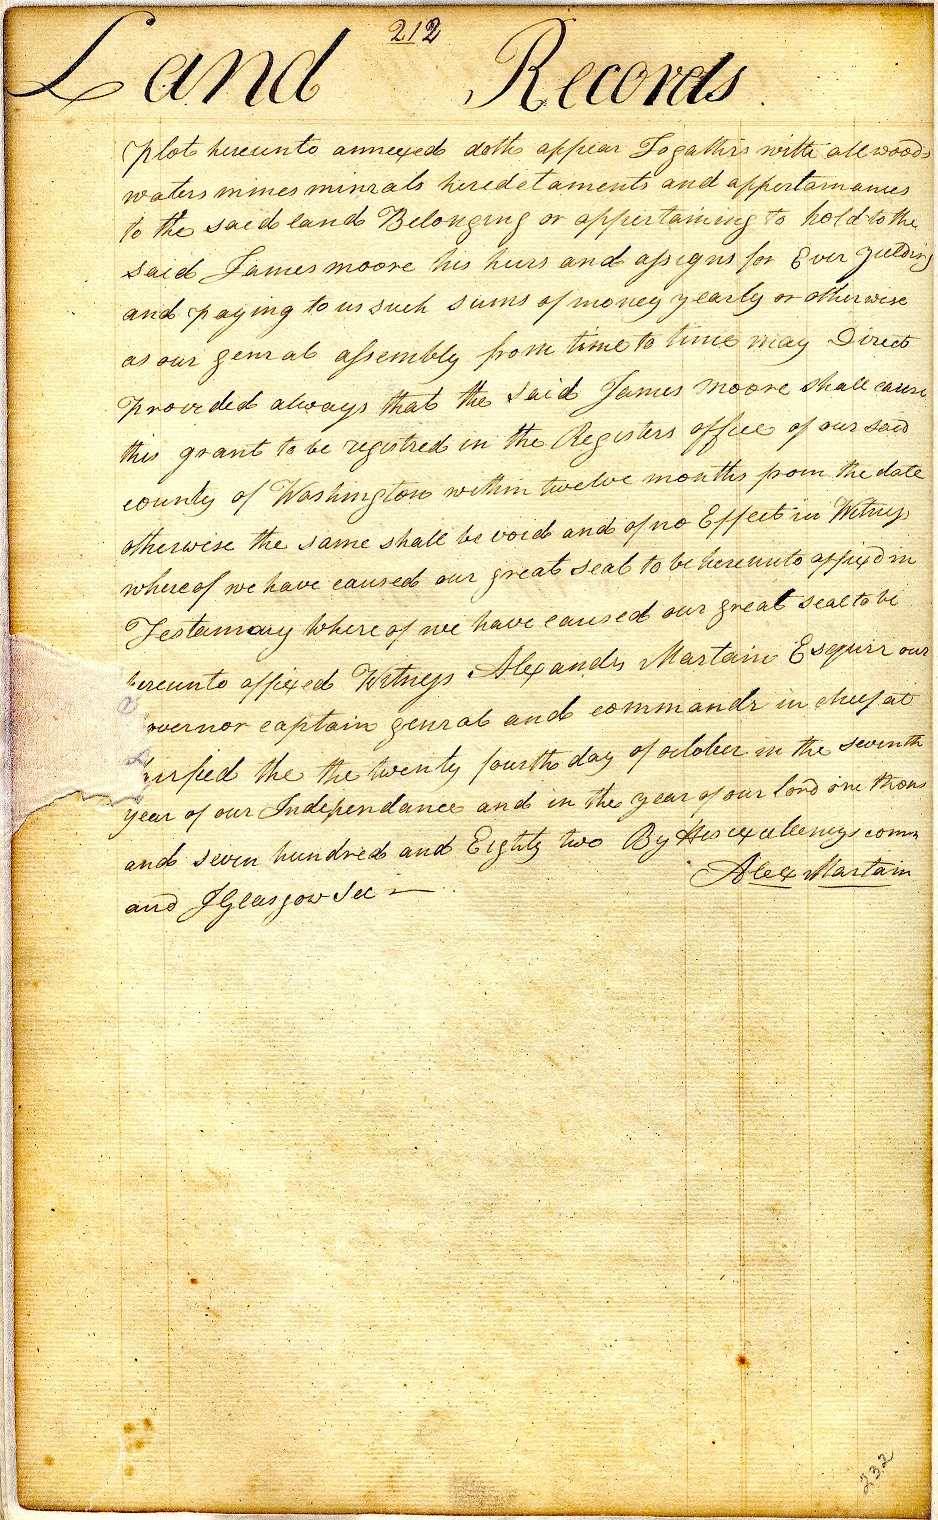 212
Land Records
plot hereunto annexed doth appear Togathir with all woods
waters mines minrals heredetaments and appertainances
to the said land Belonging or appertaining to hold to the
said James moore his heirs and assigns for Ever yielding
and paying to us such sums of money yearly or otherwise
as our genral assembly from time to time may Direct
provided always that the said James moore shall cause
this grant to be registred in the Registers office of our said
county of Washington within twelve months from the date
otherwise the same shall be void and of no Effect in Witness
whereof we have caused our great seal to be hereunto affixd in
Testamony where of we have caused our great seal to be
hereunto affixed Witness Alexandr Martain Esquire our
overnor captain genral and commandr in cheef at
the the twenty fourth day of october in the seventh
year of our Independance and in the year of our lord one thous
and seven hundred and Eighty two By His excellencys comm
Alex Martain
and J Glasgow Sec
232